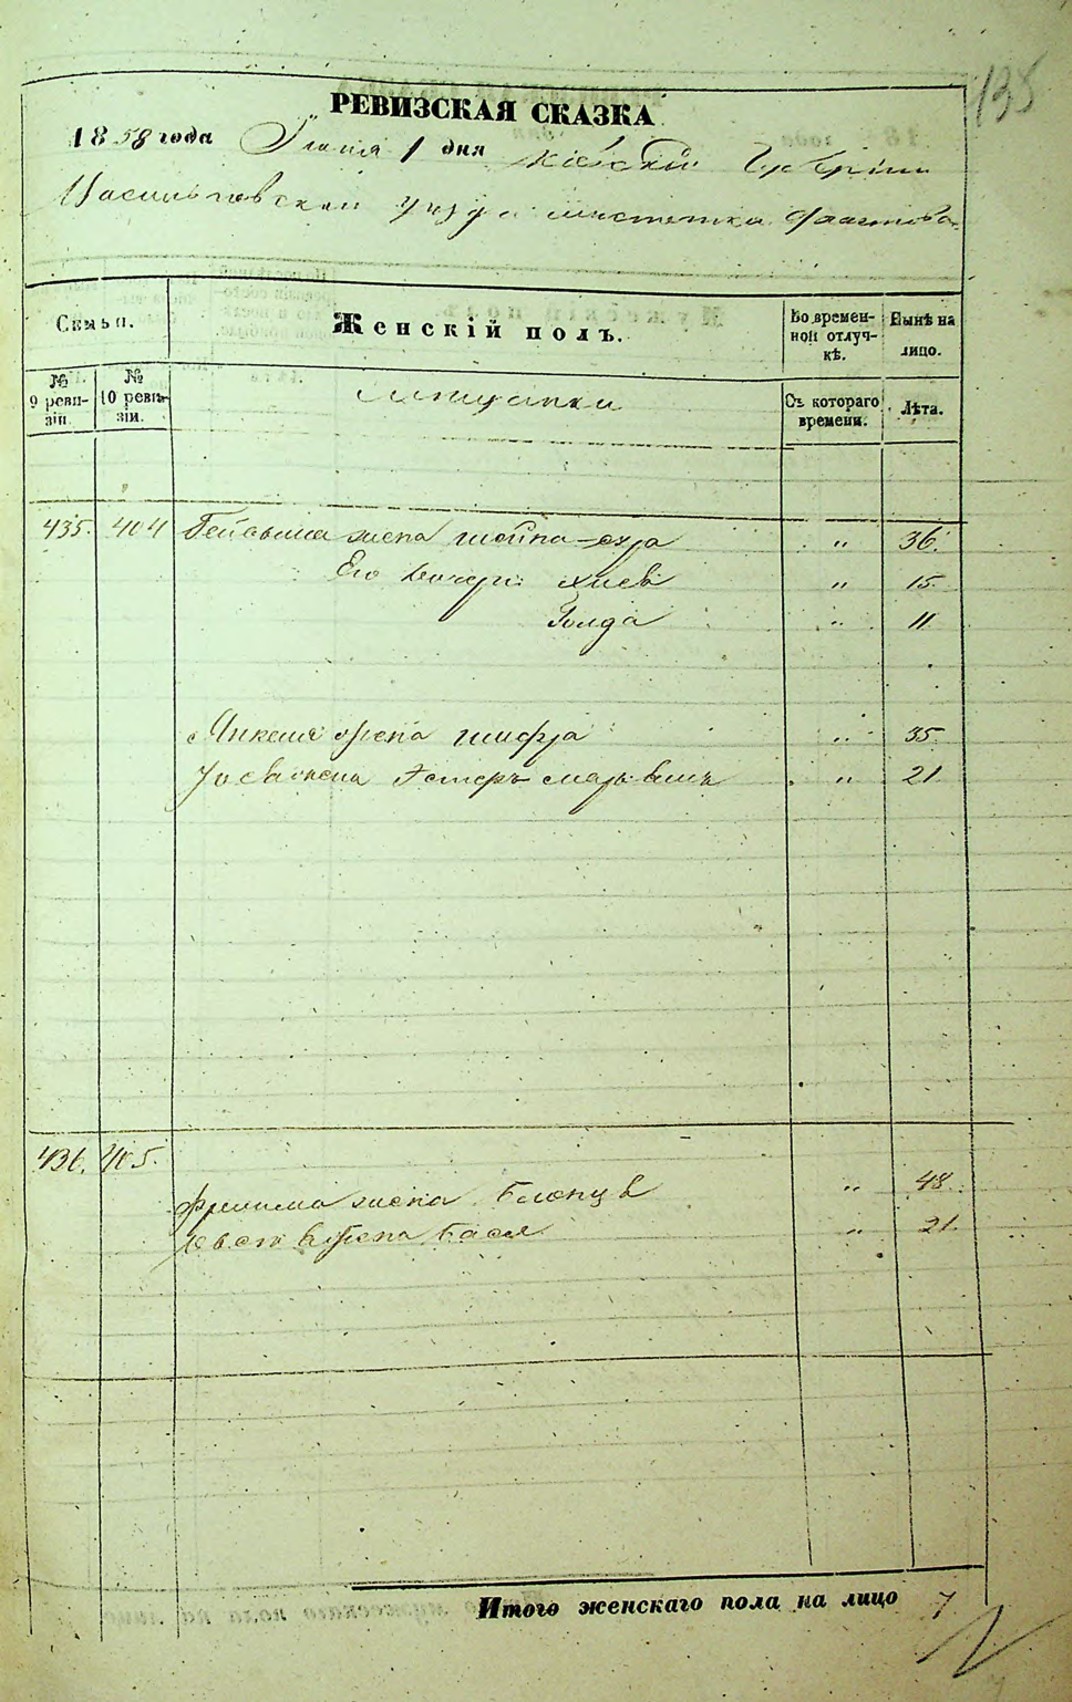 135
РЕВИЗСКАЯ СКАЗКА
1858 года Іюня 1 дня Кіевской Губерніи
Васильковскаго уезда местечка Фастова
Семьи.
Женскій полъ.
Во времен-
ной отлуч-
кѣ.
Нынѣ на
лицо.
№
9 реви-
зіи.
№
10 реви-
зіи.
Мещанки
Съ котораго
времени.
Лѣта.
435. 404 жена Шейна-Сура " 36.
Его дочери: Хися " 15
Голда " 11
Янкеля жена Шифра " 35
жена Эстеръ " 21
436. 405.
Фроима жена " 48
жена Бася " 21
Итого женскаго пола на лицо 7